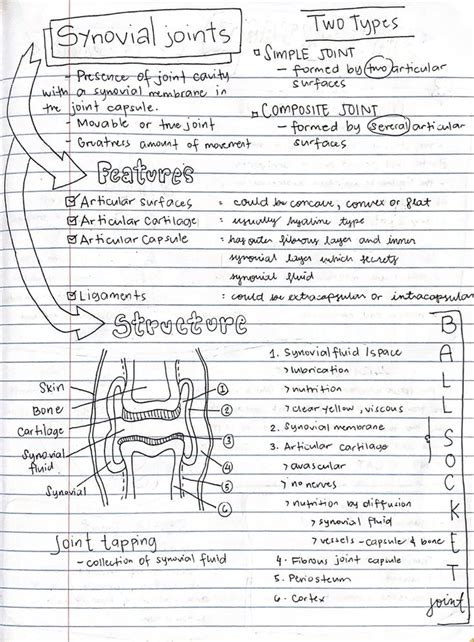 Synovial joints
- Presence of joint cavity
with a synovial membrane in
the joint capsule.
- Movable or true joint
- Greatness amount of movement
Two Types
SIMPLE JOINT
- formed by two articular
surfaces
COMPOSITE JOINT
- formed by several articular
surfaces
Features
Articular Surfaces : could be concave, convex or flat
Articular Cartilage : usually hyaline type
Articular Capsule : has outer fibrous layer and inner
synovial layer which secrets
synovial fluid
Ligaments : could be extracapsular or intracapsular
Structure
Skin
Bone
Cartilage
Synovial
fluid
Synovial
1
2
3
4
5
6
Joint tapping
- collection of synovial fluid
1. Synovial fluid / space
> lubrication
> nutrition
> clear yellow, viscous
2. Synovial membrane
3. Articular cartilage
> avascular
> no nerves
> nutrition by diffusion
> synovial fluid
> vessels - capsule & bone
4. Fibrous joint capsule
5. Periosteum
6. Cortex
BALL & SOCKET
joint